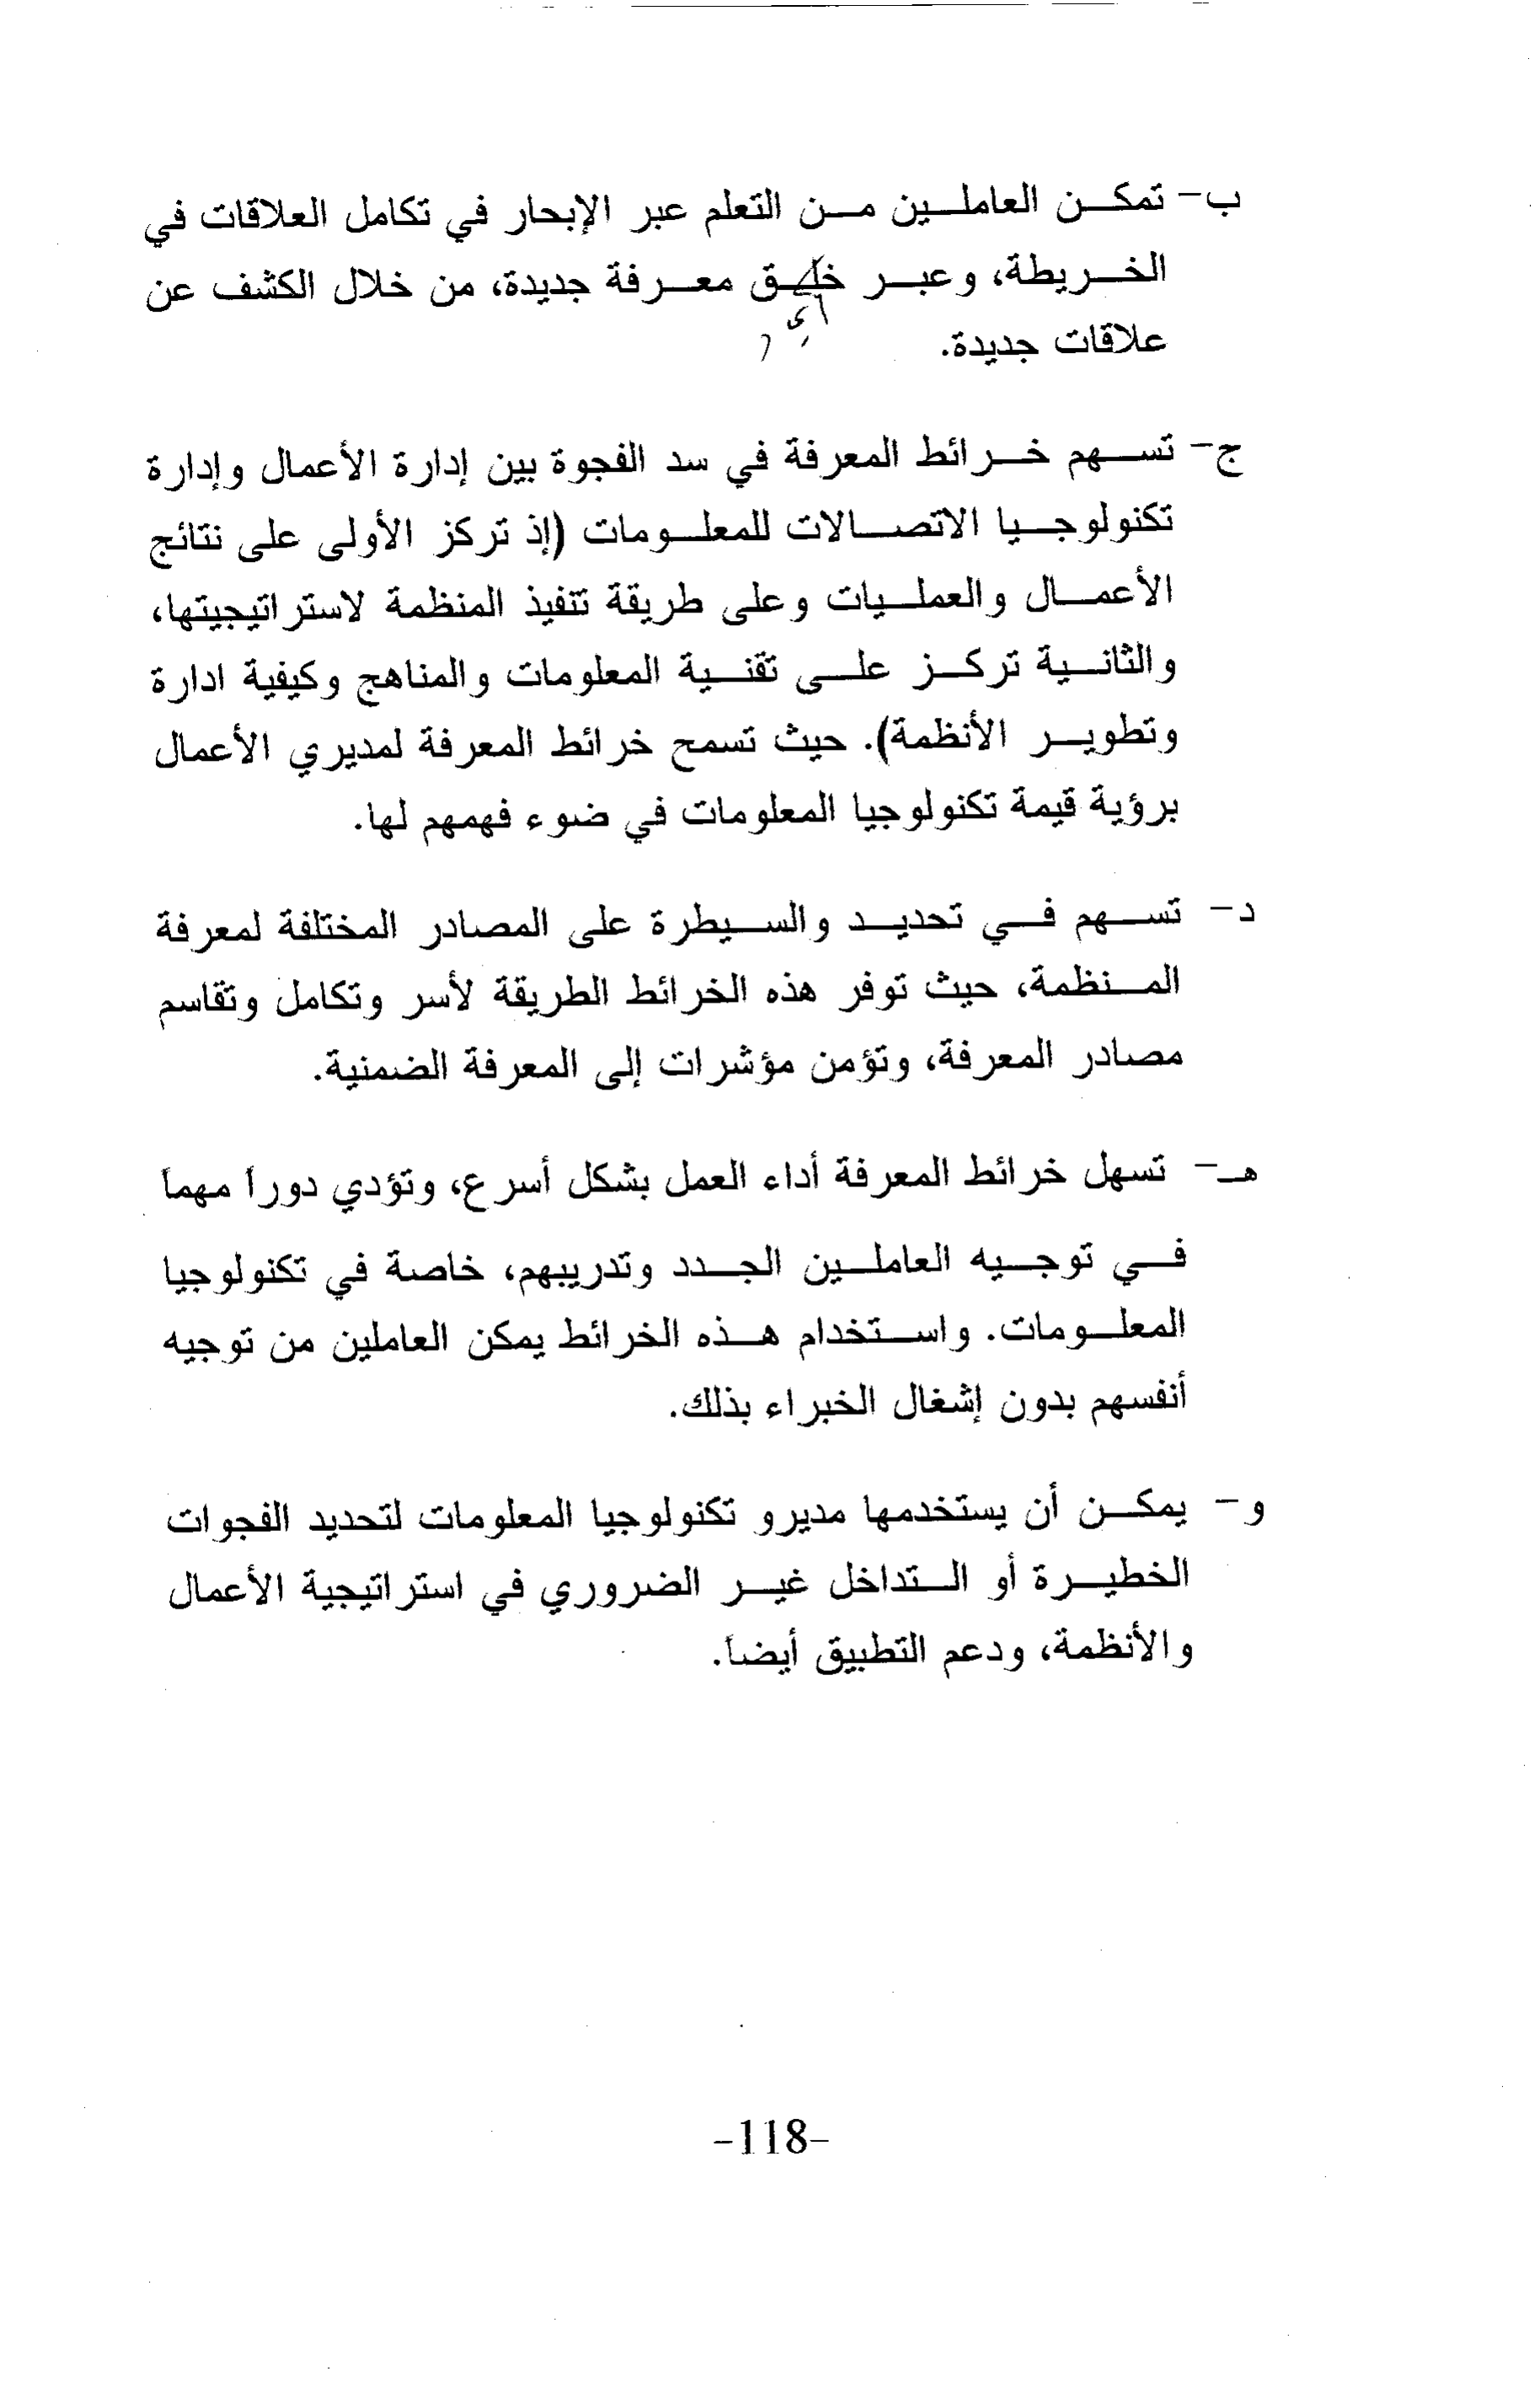 ب- تمكن العاملين من التعلم عبر الإبحار في تكامل العلاقات في
الخريطة، وعبر خلق معرفة جديدة، من خلال الكشف عن
علاقات جديدة.
ج- تسهم خرائط المعرفة في سد الفجوة بين إدارة الأعمال وإدارة
تكنولوجيا الاتصالات للمعلومات (إذ تركز الأولى على نتائج
الأعمال والعمليات وعلى طريقة تنفيذ المنظمة لاستراتيجيتها،
والثانية تركز على تقنية المعلومات والمناهج وكيفية ادارة
وتطوير الأنظمة). حيث تسمح خرائط المعرفة لمديري الأعمال
برؤية قيمة تكنولوجيا المعلومات في ضوء فهمهم لها.
د- تسهم في تحديد والسيطرة على المصادر المختلفة لمعرفة
المنظمة، حيث توفر هذه الخرائط الطريقة لأسر وتكامل وتقاسم
مصادر المعرفة، وتؤمن مؤشرات إلى المعرفة الضمنية.
هـ- تسهل خرائط المعرفة أداء العمل بشكل أسرع، وتؤدي دوراً مهماً
في توجيه العاملين الجدد وتدريبهم، خاصة في تكنولوجيا
المعلومات. واستخدام هذه الخرائط يمكن العاملين من توجيه
أنفسهم بدون إشغال الخبراء بذلك.
و- يمكن أن يستخدمها مديرو تكنولوجيا المعلومات لتحديد الفجوات
الخطيرة أو التداخل غير الضروري في استراتيجية الأعمال
والأنظمة، ودعم التطبيق أيضاً.
-118-